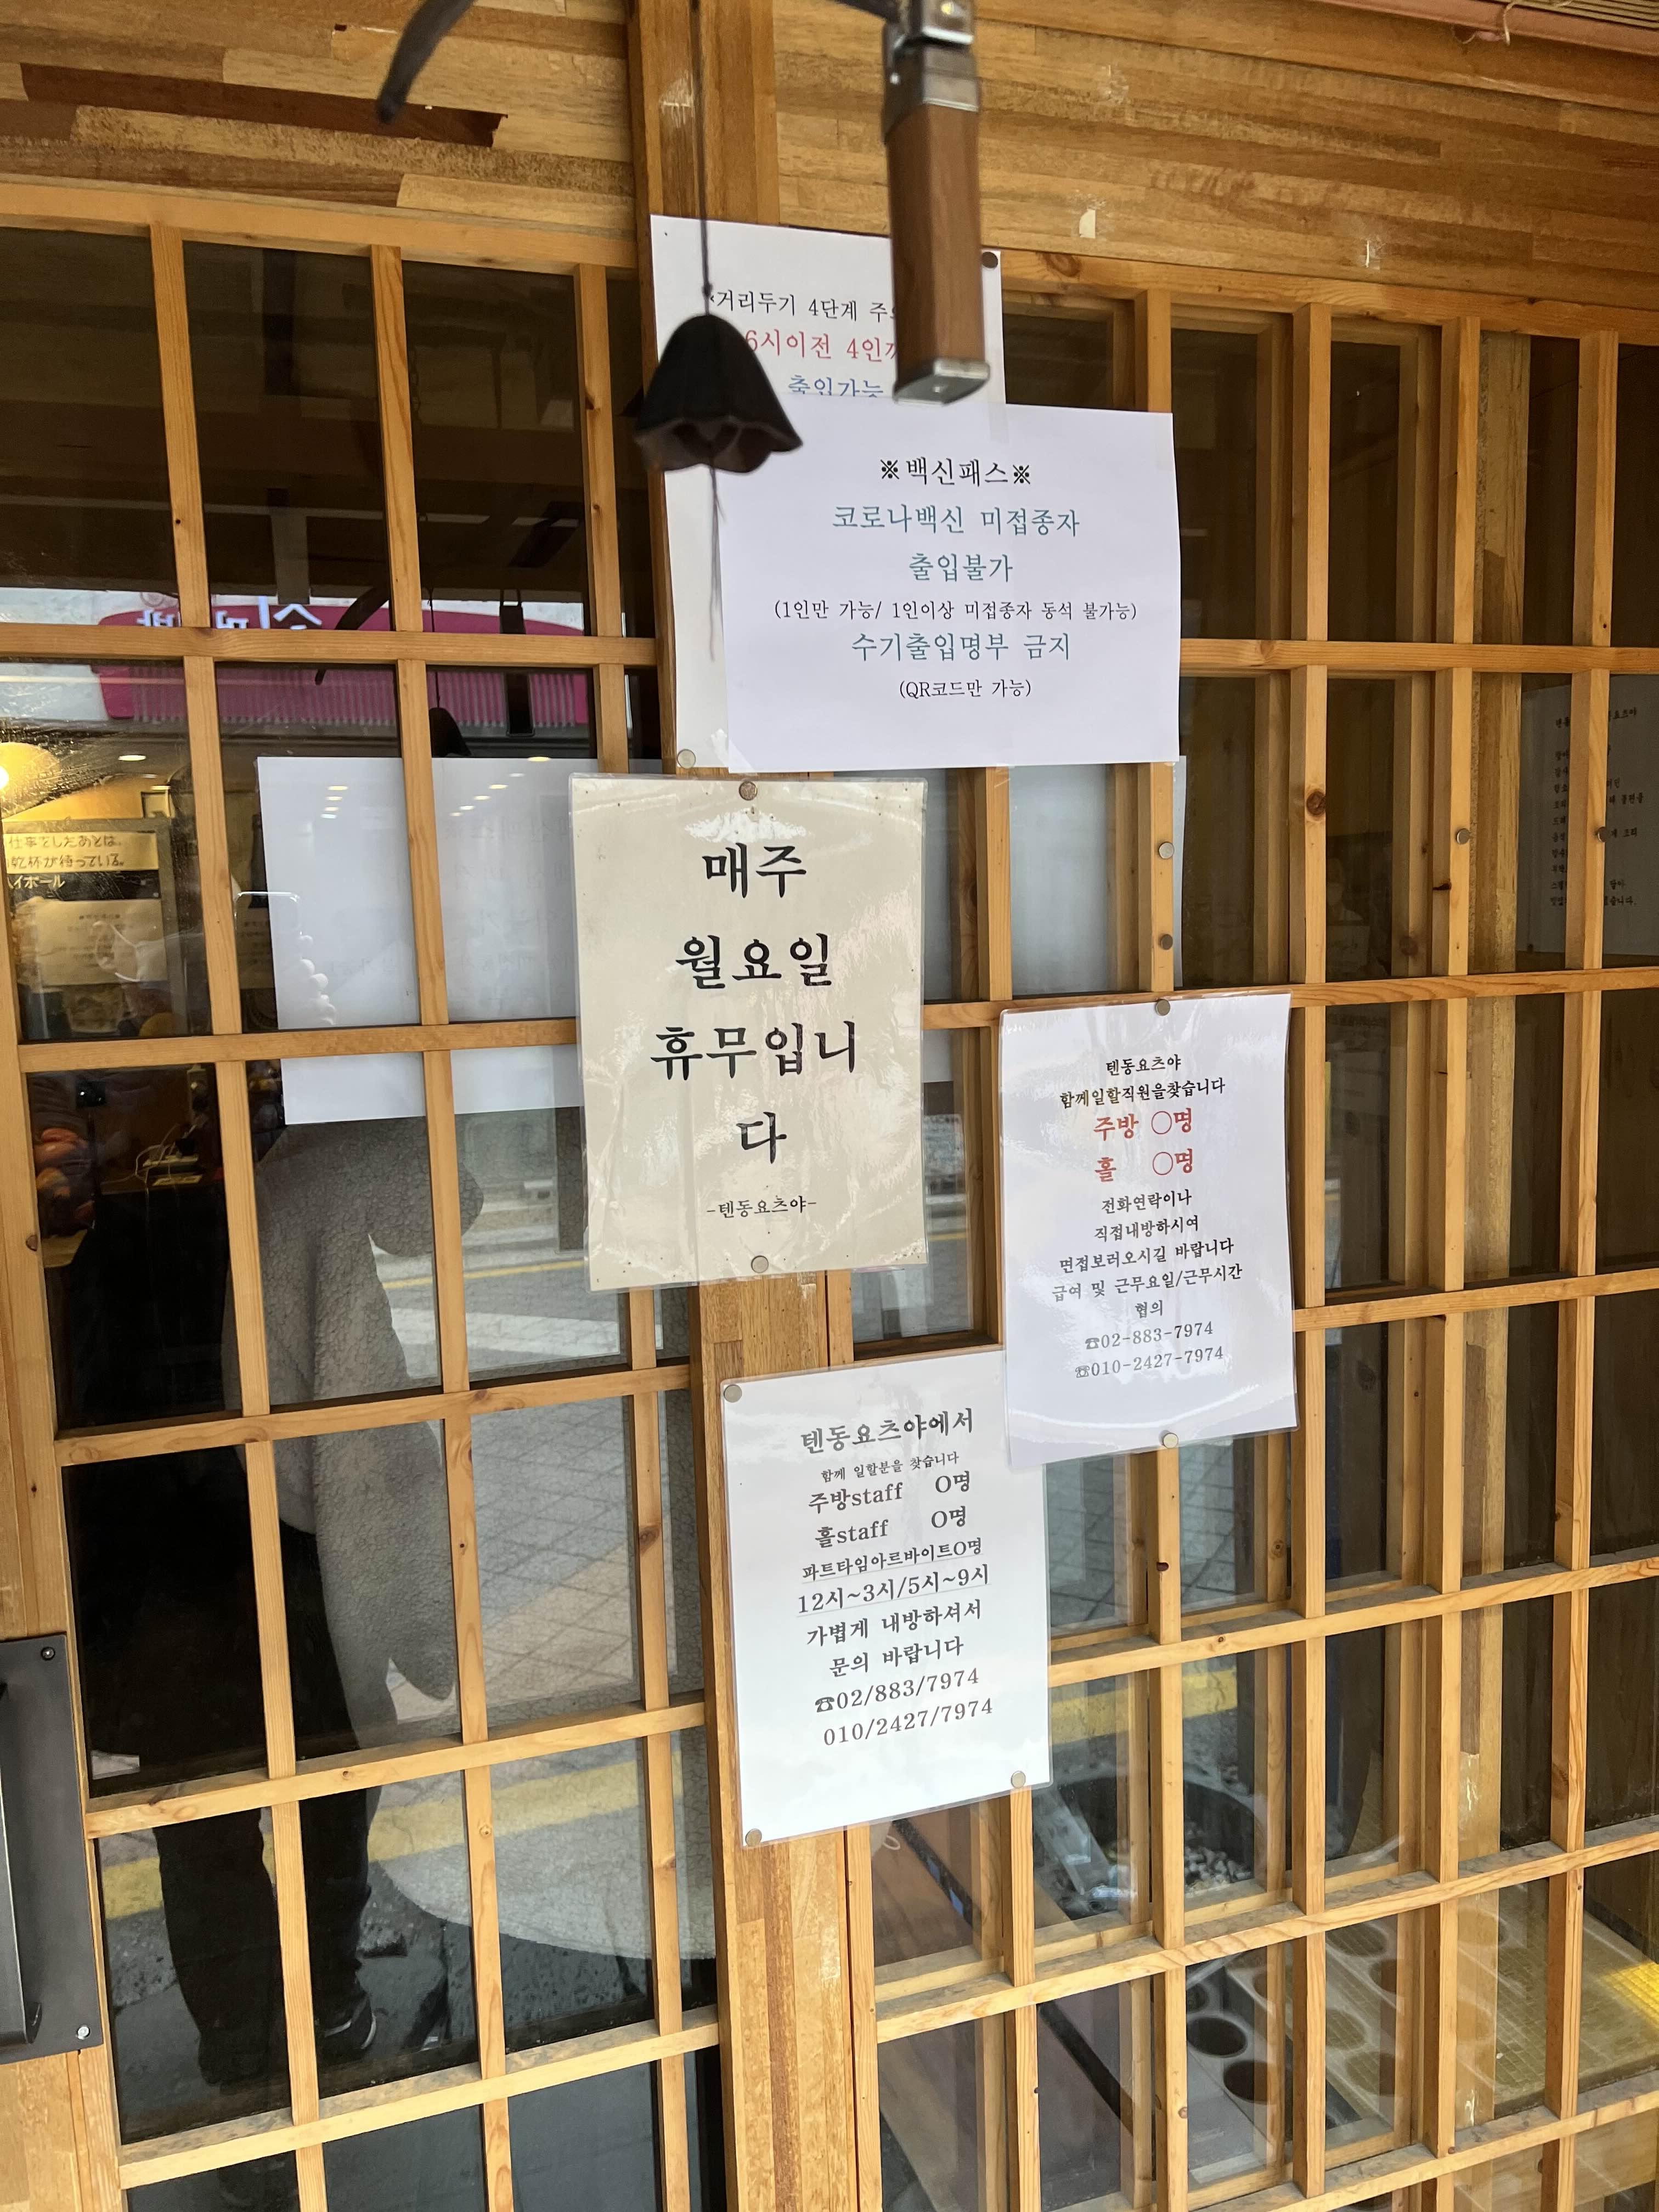 거리두기 4단계
6시이전 4인
출입가능
※백신패스※
코로나백신 미접종자
출입불가
(1인만 가능/ 1인이상 미접종자 동석 불가능)
수기출입명부 금지
(QR코드만 가능)
매주
월요일
휴무입니
다
-텐동요츠야-
텐동요츠야
함께일할직원을찾습니다
주방 〇명
홀 〇명
전화연락이나
직접내방하시여
면접보러오시길 바랍니다
급여 및 근무요일/근무시간
협의
☎02-883-7974
☏010-2427-7974
텐동요츠야에서
함께 일할분을 찾습니다
주방staff O명
홀staff O명
파트타임아르바이트O명
12시~3시/5시~9시
가볍게 내방하셔서
문의 바랍니다
☎02/883/7974
010/2427/7974
仕事をしたあとは、
乾杯が待っている。